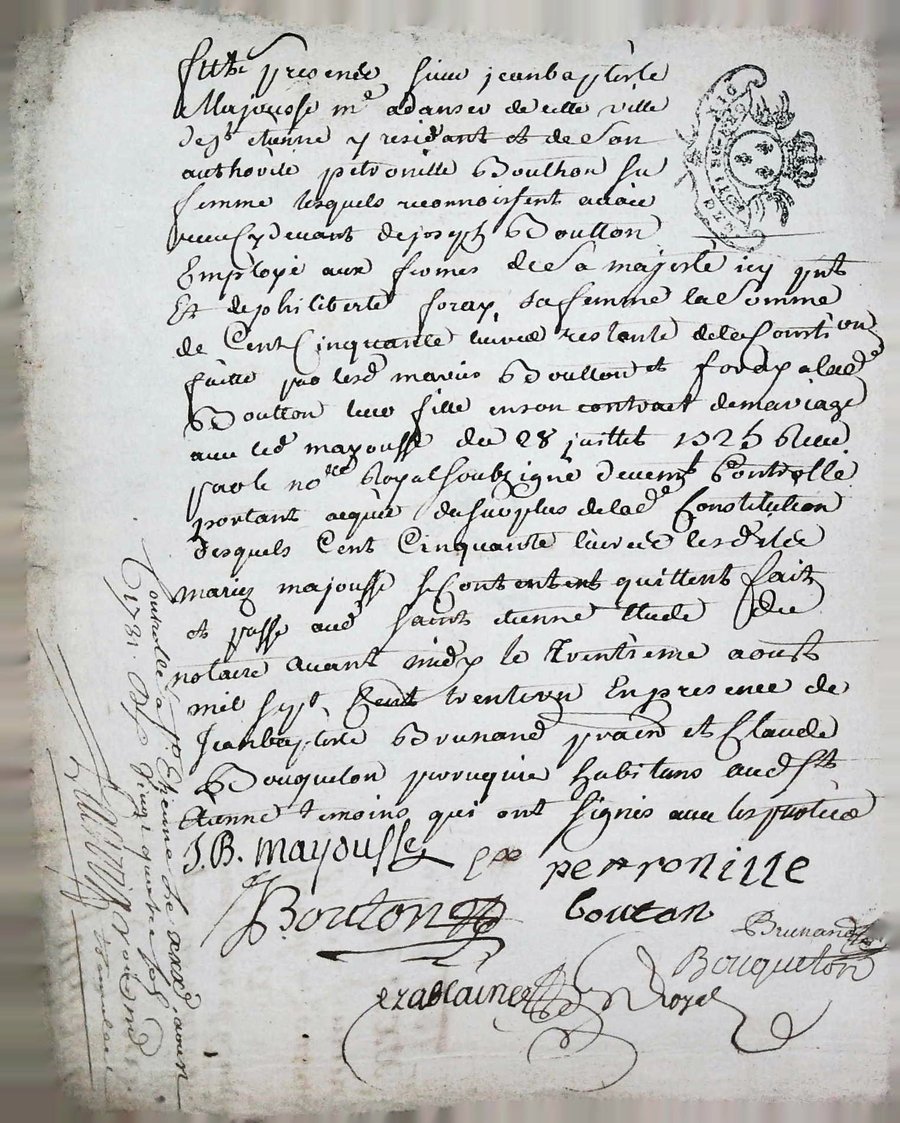 fut presence sieur jeanbaptiste
Majousse me adanser de cette ville
de st etienne y residant et de son
authorite petronille Bouthon sa
femme lesquels reconnoissent avoir
receu cy devant de joseph Boutton
Employé aux fermes de Sa majesté icy pnt
Et de philiberte foray sa femme la Somme
de Cent Cinquante livres restante de la Constion
faitte par lesd mariés Boutton et foray a lade
Boutton leur fille en son contract de mariage
avec led mayousse du 28 juillet 1725 Receu
par le nore Royal Soubzigné Controllé
portant acquit du surplus de lade Constitution
desquels Cent Cinquante livres lesd
mariez majousse se contentent quittent fait
et passé aud Saint etienne Etude du
notaire avant midy le trentieme aoust
mil sept Cent trente un En presence de
Jeanbaptiste Brunand et Claude
Bouquelon peruquier habitans aud St
Etienne temoins qui ont signés avec les parties
J.B. mayousse petronille
Bouton bouton
Brunand
Bouquelon
ezablaine N Royal
Controllé a St Etienne le aoust
1731